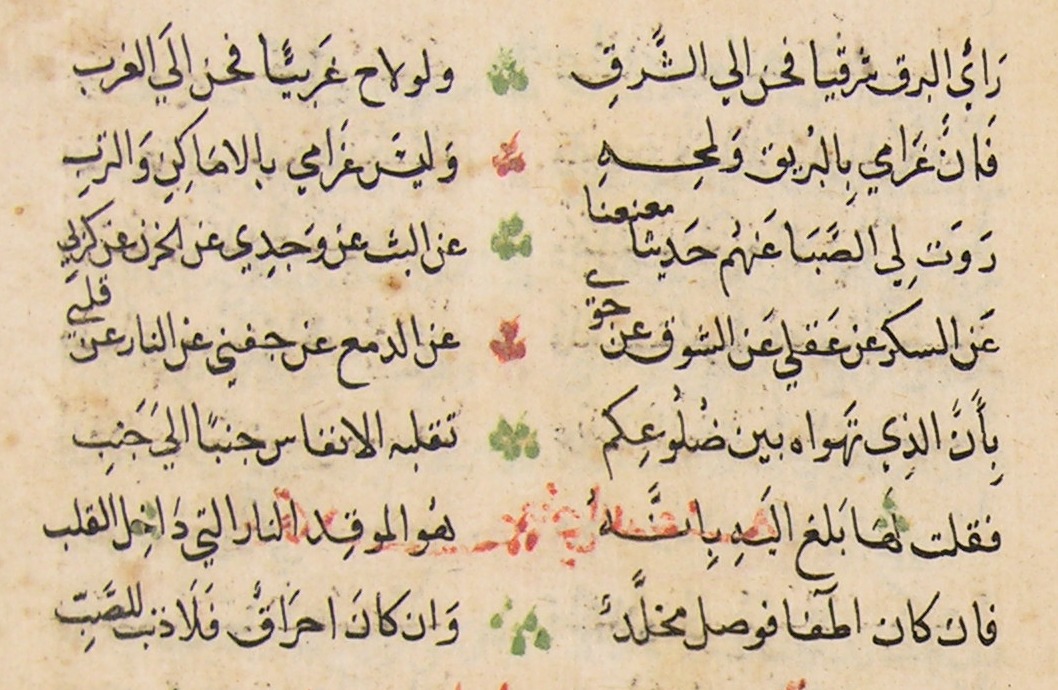 رَاَيُ البرق شرقيا فحن الي الشَّرقِ ولو لاح غَربيًّا فحن الَي الغرب
فَانَّ غَرَامي بِالبُريق وَلمحِهِ وَليسَ غَرَامي بالامَاكِنِ وَالترب
رَوَت لِي الصَّبَا عَنهُم حَديثا معنعنا عن البث عن وَجدِي عن الحزن عن كربي
عَن السكر عن عَقلي عَن الشوق عن جوي عن الدمع عن جفني عن النار عن قلبي
بِأَنَّ الذِي تَهواه بين ضُلُوعِكم تقلبه الانفاس جنبًا الَي جَنبِ
فقلت لهَا بَلغ اليَهِ بِانَّهُ هُو الموقِد النار التي دَاخِل القلب
فان كان اطفَا فوصل مخلَّدٌ وَان كانَ احرَاقٌ فَلَا ذنب للصَّبِّ